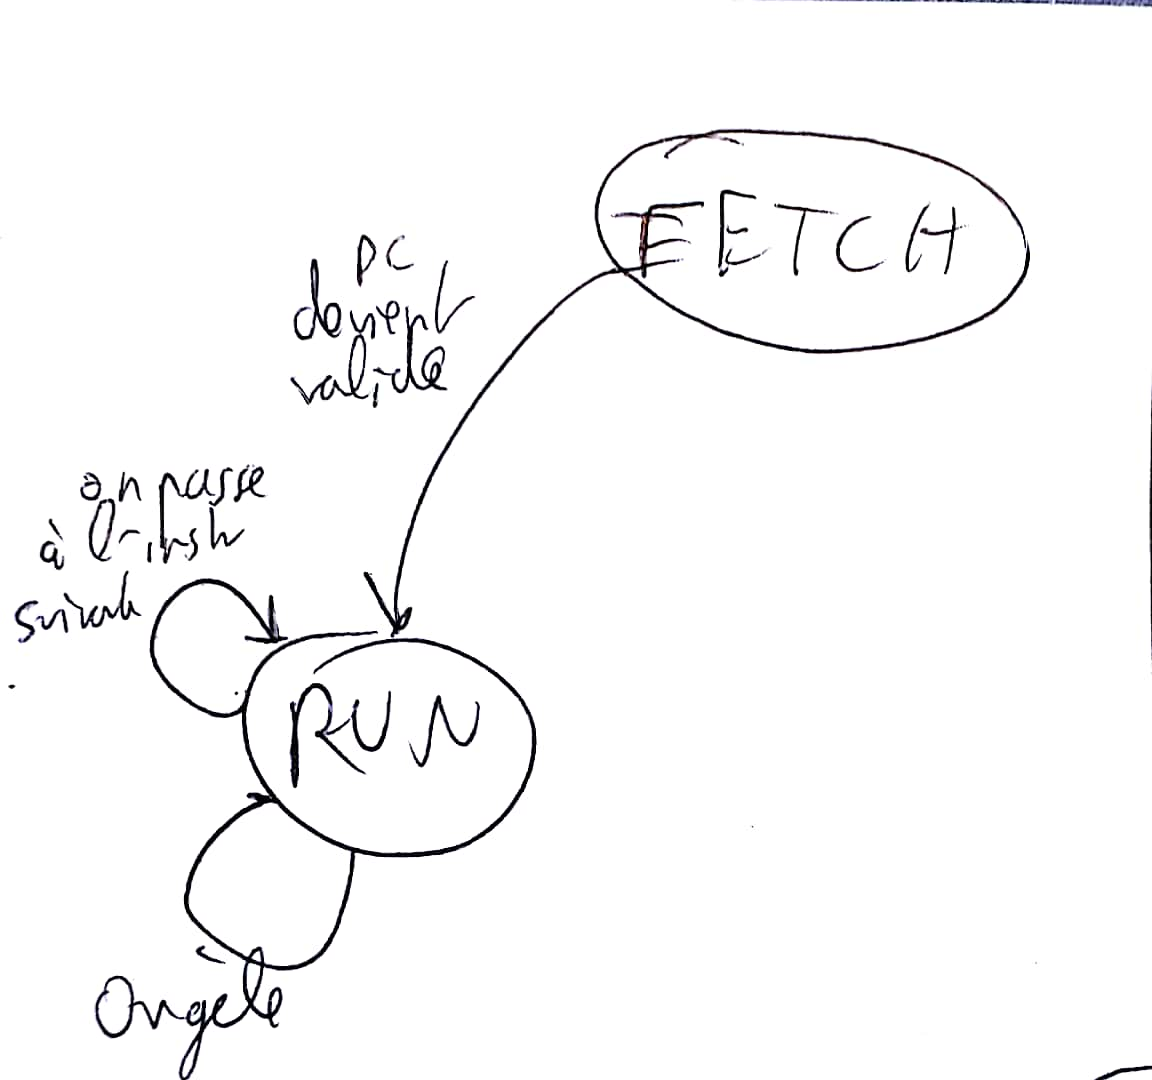 FETCH
PC
devient
valide
on passe
à l'instr
suivante
RUN
On gèle